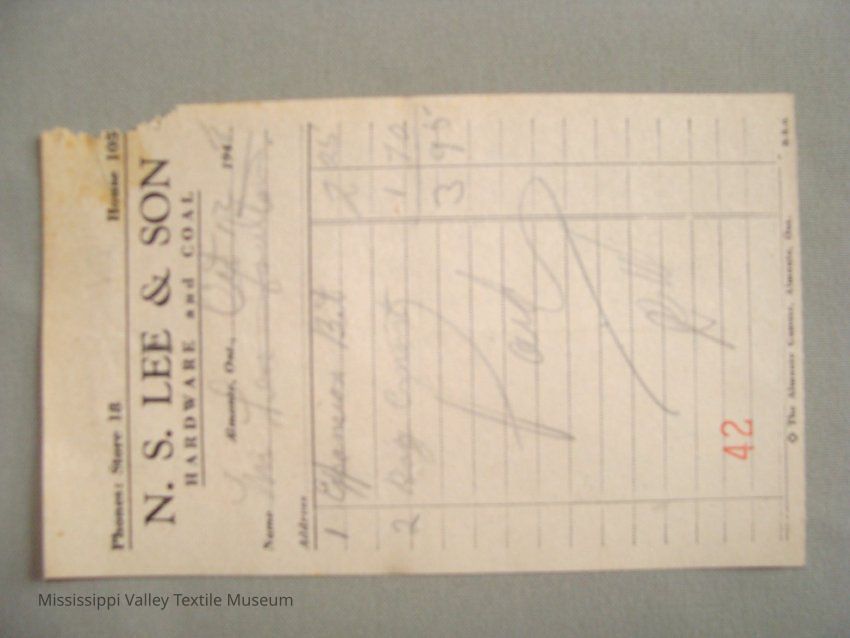 Phones: Store 18 House 105
N. S. LEE & SON
HARDWARE and COAL
Almonte, Ont., Oct 12 194
Name
Address
1 Expansion Bit 2 25
2 Bag 1 70
3 95
Paid
42
The Almonte Gazette, Almonte, Ont.
Mississippi Valley Textile Museum